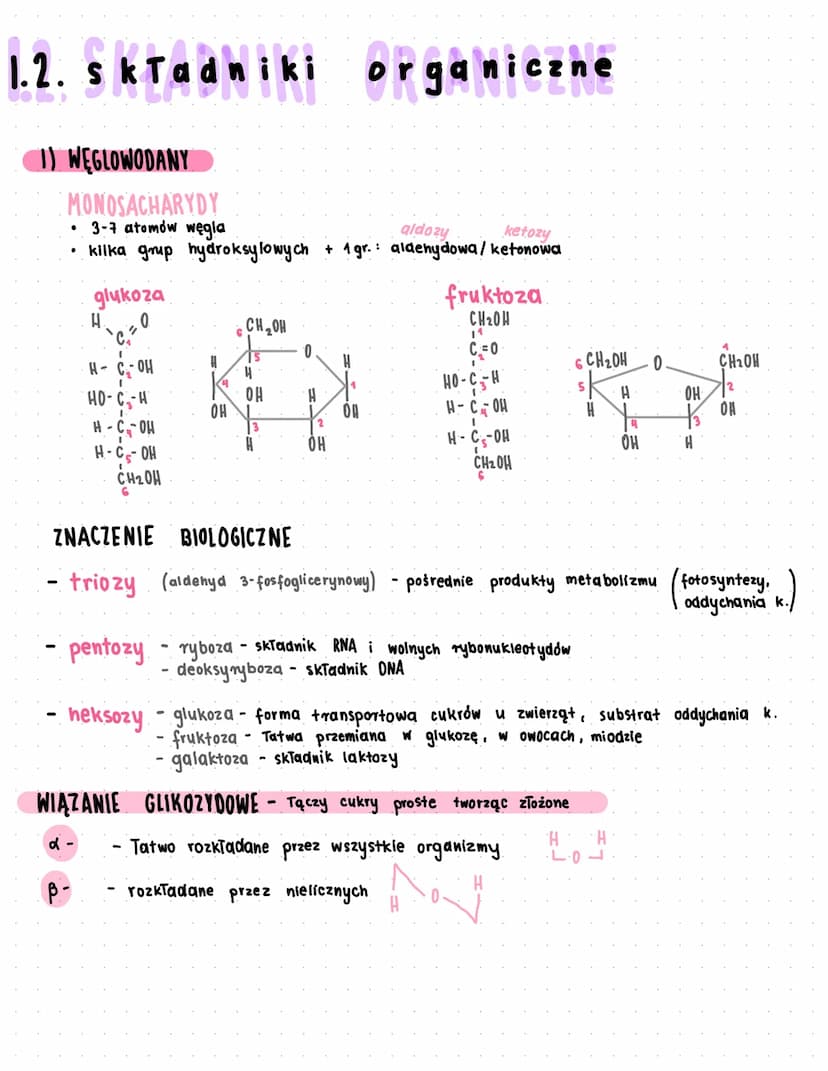 1.2. składniki organiczne
1) WĘGLOWODANY
MONOSACHARYDY
• 3-7 atomów węgla
aldozy ketozy
• kilka grup hydroksylowych + 1 gr.: aldehydowa/ketonowa
glukoza
H O
C 1
H - C2 - OH
HO - C3 - H
H - C4 - OH
H - C5 - OH
CH2OH
6
6 CH2OH
5 O
H H H
4 OH H 1
OH 3 2 OH
H OH
fruktoza
CH2OH
1
C2=O
HO - C3 - H
H - C4 - OH
H - C5 - OH
CH2OH
6
6 CH2OH O 1 CH2OH
5 H OH 2
H 4 3 OH
OH H
ZNACZENIE BIOLOGICZNE
- triozy (aldehyd 3-fosfoglicerynowy) - pośrednie produkty metabolizmu (fotosyntezy,
oddychania k.)
- pentozy - ryboza - składnik RNA i wolnych rybonukleotydów
- deoksyryboza - składnik DNA
- heksozy - glukoza - forma transportowa cukrów u zwierząt, substrat oddychania k.
- fruktoza - łatwa przemiana w glukozę, w owocach, miodzie
- galaktoza - składnik laktozy
WIĄZANIE GLIKOZYDOWE - łączy cukry proste tworząc złożone
α - - łatwo rozkładane przez wszystkie organizmy H H
O
β - - rozkładane przez nielicznych H O H